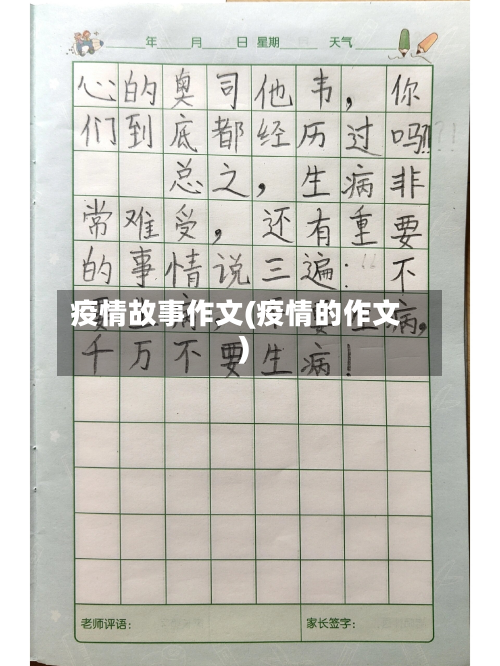 年 月 日 星期 天气
心的奥司他韦，你
们到底都经历过吗?!!
总之，生病非
常难受，还有重要
的事情说三遍：不
疫情故事作文(疫情的作文
)
病，
千万不要生病！
老师评语： 家长签字：